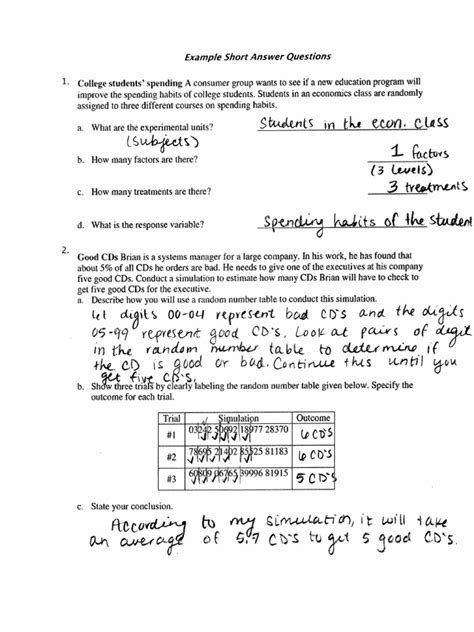 Example Short Answer Questions
1. College students' spending A consumer group wants to see if a new education program will
improve the spending habits of college students. Students in an economics class are randomly
assigned to three different courses on spending habits.
a. What are the experimental units? Students in the econ. class
(Subjects)
b. How many factors are there? 1 factors
(3 levels)
c. How many treatments are there? 3 treatments
d. What is the response variable? Spending habits of the student
2. Good CDs Brian is a systems manager for a large company. In his work, he has found that
about 5% of all CDs he orders are bad. He needs to give one of the executives at his company
five good CDs. Conduct a simulation to estimate how many CDs Brian will have to check to
get five good CDs for the executive.
a. Describe how you will use a random number table to conduct this simulation.
let digits 00-04 represent bad CD's and the digits
05-99 represent good CD's. Look at pairs of digit
in the random number table to determine if
the CD is good or bad. Continue this until you
get five CD's.
b. Show three trials by clearly labeling the random number table given below. Specify the
outcome for each trial.
Trial Simulation Outcome
#1 03242 50692 18977 28370 6 CD's
#2 78695 21402 85525 81183 6 CD's
#3 60809 06765 39996 81915 5 CD's
c. State your conclusion.
According to my simulation, it will take
an average of 5.7 CD's to get 5 good CD's.